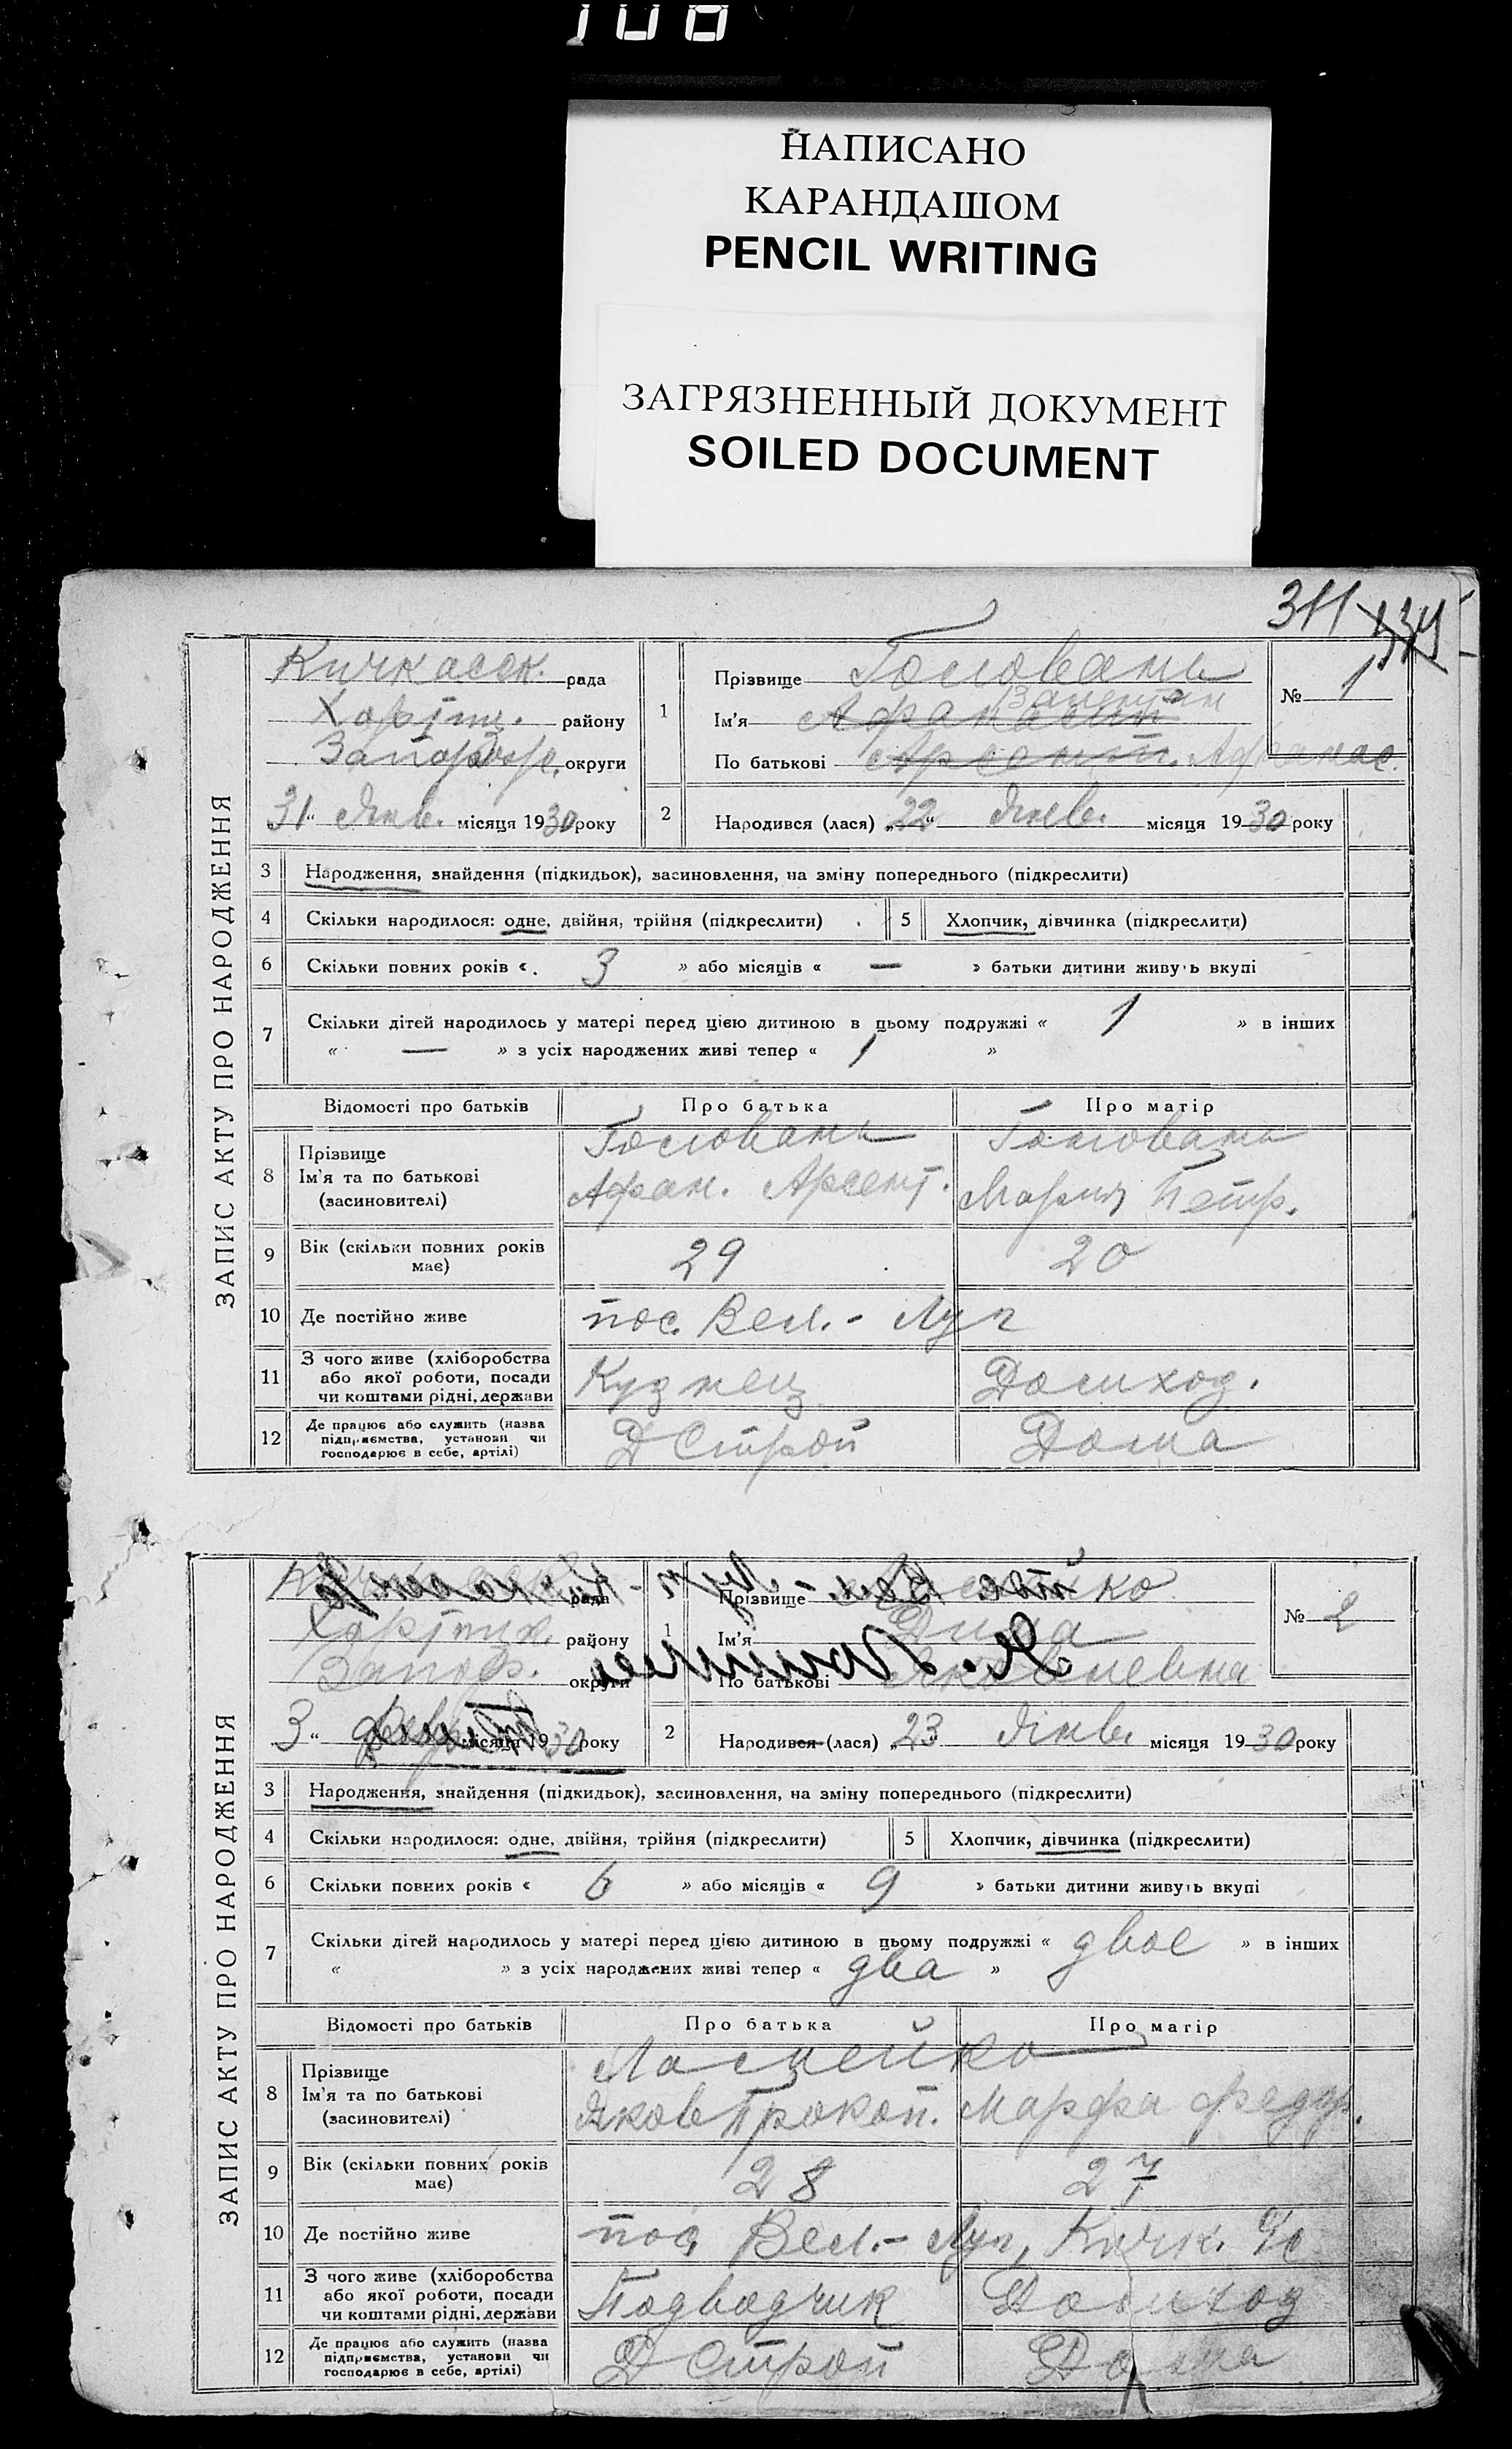 108
НАПИСАНО
КАРАНДАШОМ
PENCIL WRITING
ЗАГРЯЗНЕННЫЙ ДОКУМЕНТ
SOILED DOCUMENT
311
ЗАПИС АКТУ ПРО НАРОДЖЕННЯ
Кичкасск. рада
Хортиц. району
Запорож. округи
„31“ Янв. місяця 1930 року
1 Прізвище Головань
Ім'я Афанасий Валентин
По батькові Арсент. Афанас.
№ 1
2 Народився (лася) „22“ Янв. місяця 1930 року
3 Народження, знайдення (підкидьок), засиновлення, на зміну попереднього (підкреслити)
4 Скільки народилося: одне, двійня, трійня (підкреслити) 5 Хлопчик, дівчинка (підкреслити)
6 Скільки повних років « 3 » або місяців « — » батьки дитини живуть вкупі
7 Скільки дітей народилось у матері перед цією дитиною в цьому подружжі « 1 » в інших
« — » з усіх народжених живі тепер « 1 »
Відомості про батьків Про батька Про матір
8 Прізвище Головань Головань
Ім'я та по батькові Афан. Арсент. Мария Петр.
(засиновителі)
9 Вік (скільки повних років має) 29 20
10 Де постійно живе пос. Вел.- Луг
11 З чого живе (хліборобства
або якої роботи, посади Кузнец Домход.
чи коштами рідні, держави
12 Де працює або служить (назва
підприємства, установи чи Д Строй Дома
господарює в себе, артілі)
ЗАПИС АКТУ ПРО НАРОДЖЕННЯ
рада
Хортицк. району
Запор. округи
3 “ місяця 1930 року
1 Прізвище
Ім'я Дина
По батькові Яковлевна
№ 2
2 Народився (лася) „23 Янв. місяця 1930 року
3 Народження, знайдення (підкидьок), засиновлення, на зміну попереднього (підкреслити)
4 Скільки народилося: одне, двійня, трійня (підкреслити) 5 Хлопчик, дівчинка (підкреслити)
6 Скільки повних років « 6 » або місяців « 9 » батьки дитини живуть вкупі
7 Скільки дітей народилось у матері перед цією дитиною в цьому подружжі « двое » в інших
« » з усіх народжених живі тепер « два »
Відомості про батьків Про батька Про матір
8 Прізвище
Ім'я та по батькові Яков Прокоп. Марфа Федор.
(засиновителі)
9 Вік (скільки повних років має) 28 27
10 Де постійно живе пос. Вел.- Луг, Кичк.
11 З чого живе (хліборобства
або якої роботи, посади Подводчик Домход
чи коштами рідні, держави
12 Де працює або служить (назва
підприємства, установи чи Д Строй Дома
господарює в себе, артілі)